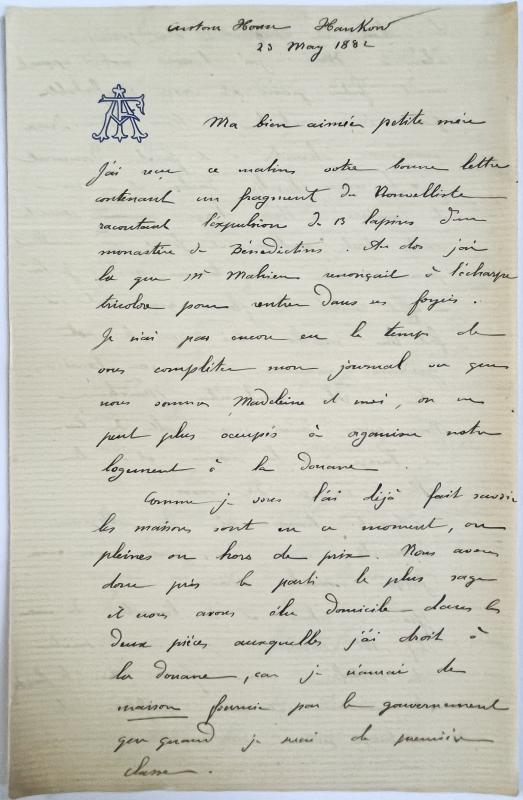 Custom House Hankow
23 May 1882
AF
Ma bien aimée petite mère
J'ai reçu ce matin votre bonne lettre
contenant un fragment du Nouvelliste
racontant l'expulsion de 13 lapins d'un
monastère de Bénédictins. Au dos j'ai
lu que Mr Mahieu renonçait à l'écharpe
tricolore pour rentrer dans ses foyers.
Je n'ai pas encore eu le temps de
vous compléter mon journal vu que
nous sommes Madeleine et moi, on ne
peut plus occupés à organiser notre
logement à la douane.
Comme je vous l'ai déjà fait savoir
les maisons sont en ce moment, ou
pleines ou hors de prix. Nous avons
donc pris le parti le plus sage
et nous avons élu domicile dans les
deux pièces auxquelles j'ai droit à
la douane, car je n'aurai de
maison fournie par le gouvernement
que quand je serai de première
classe.